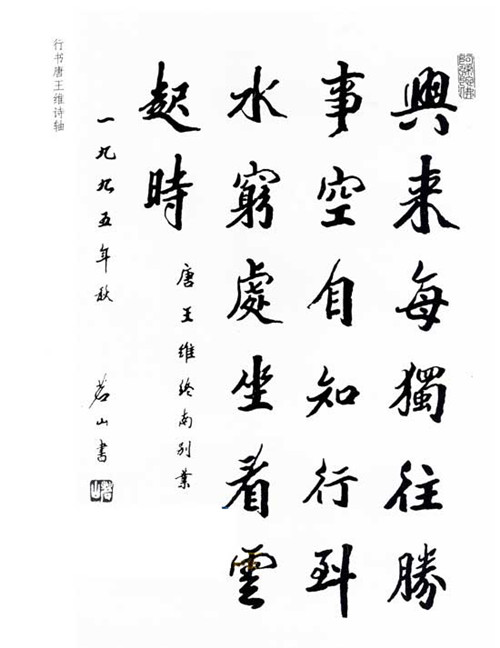 興来每獨往勝
事空自知行到
水窮處坐看雲
起時
唐王維終南别業
一九九五年秋
茗山書
行书唐王维诗轴